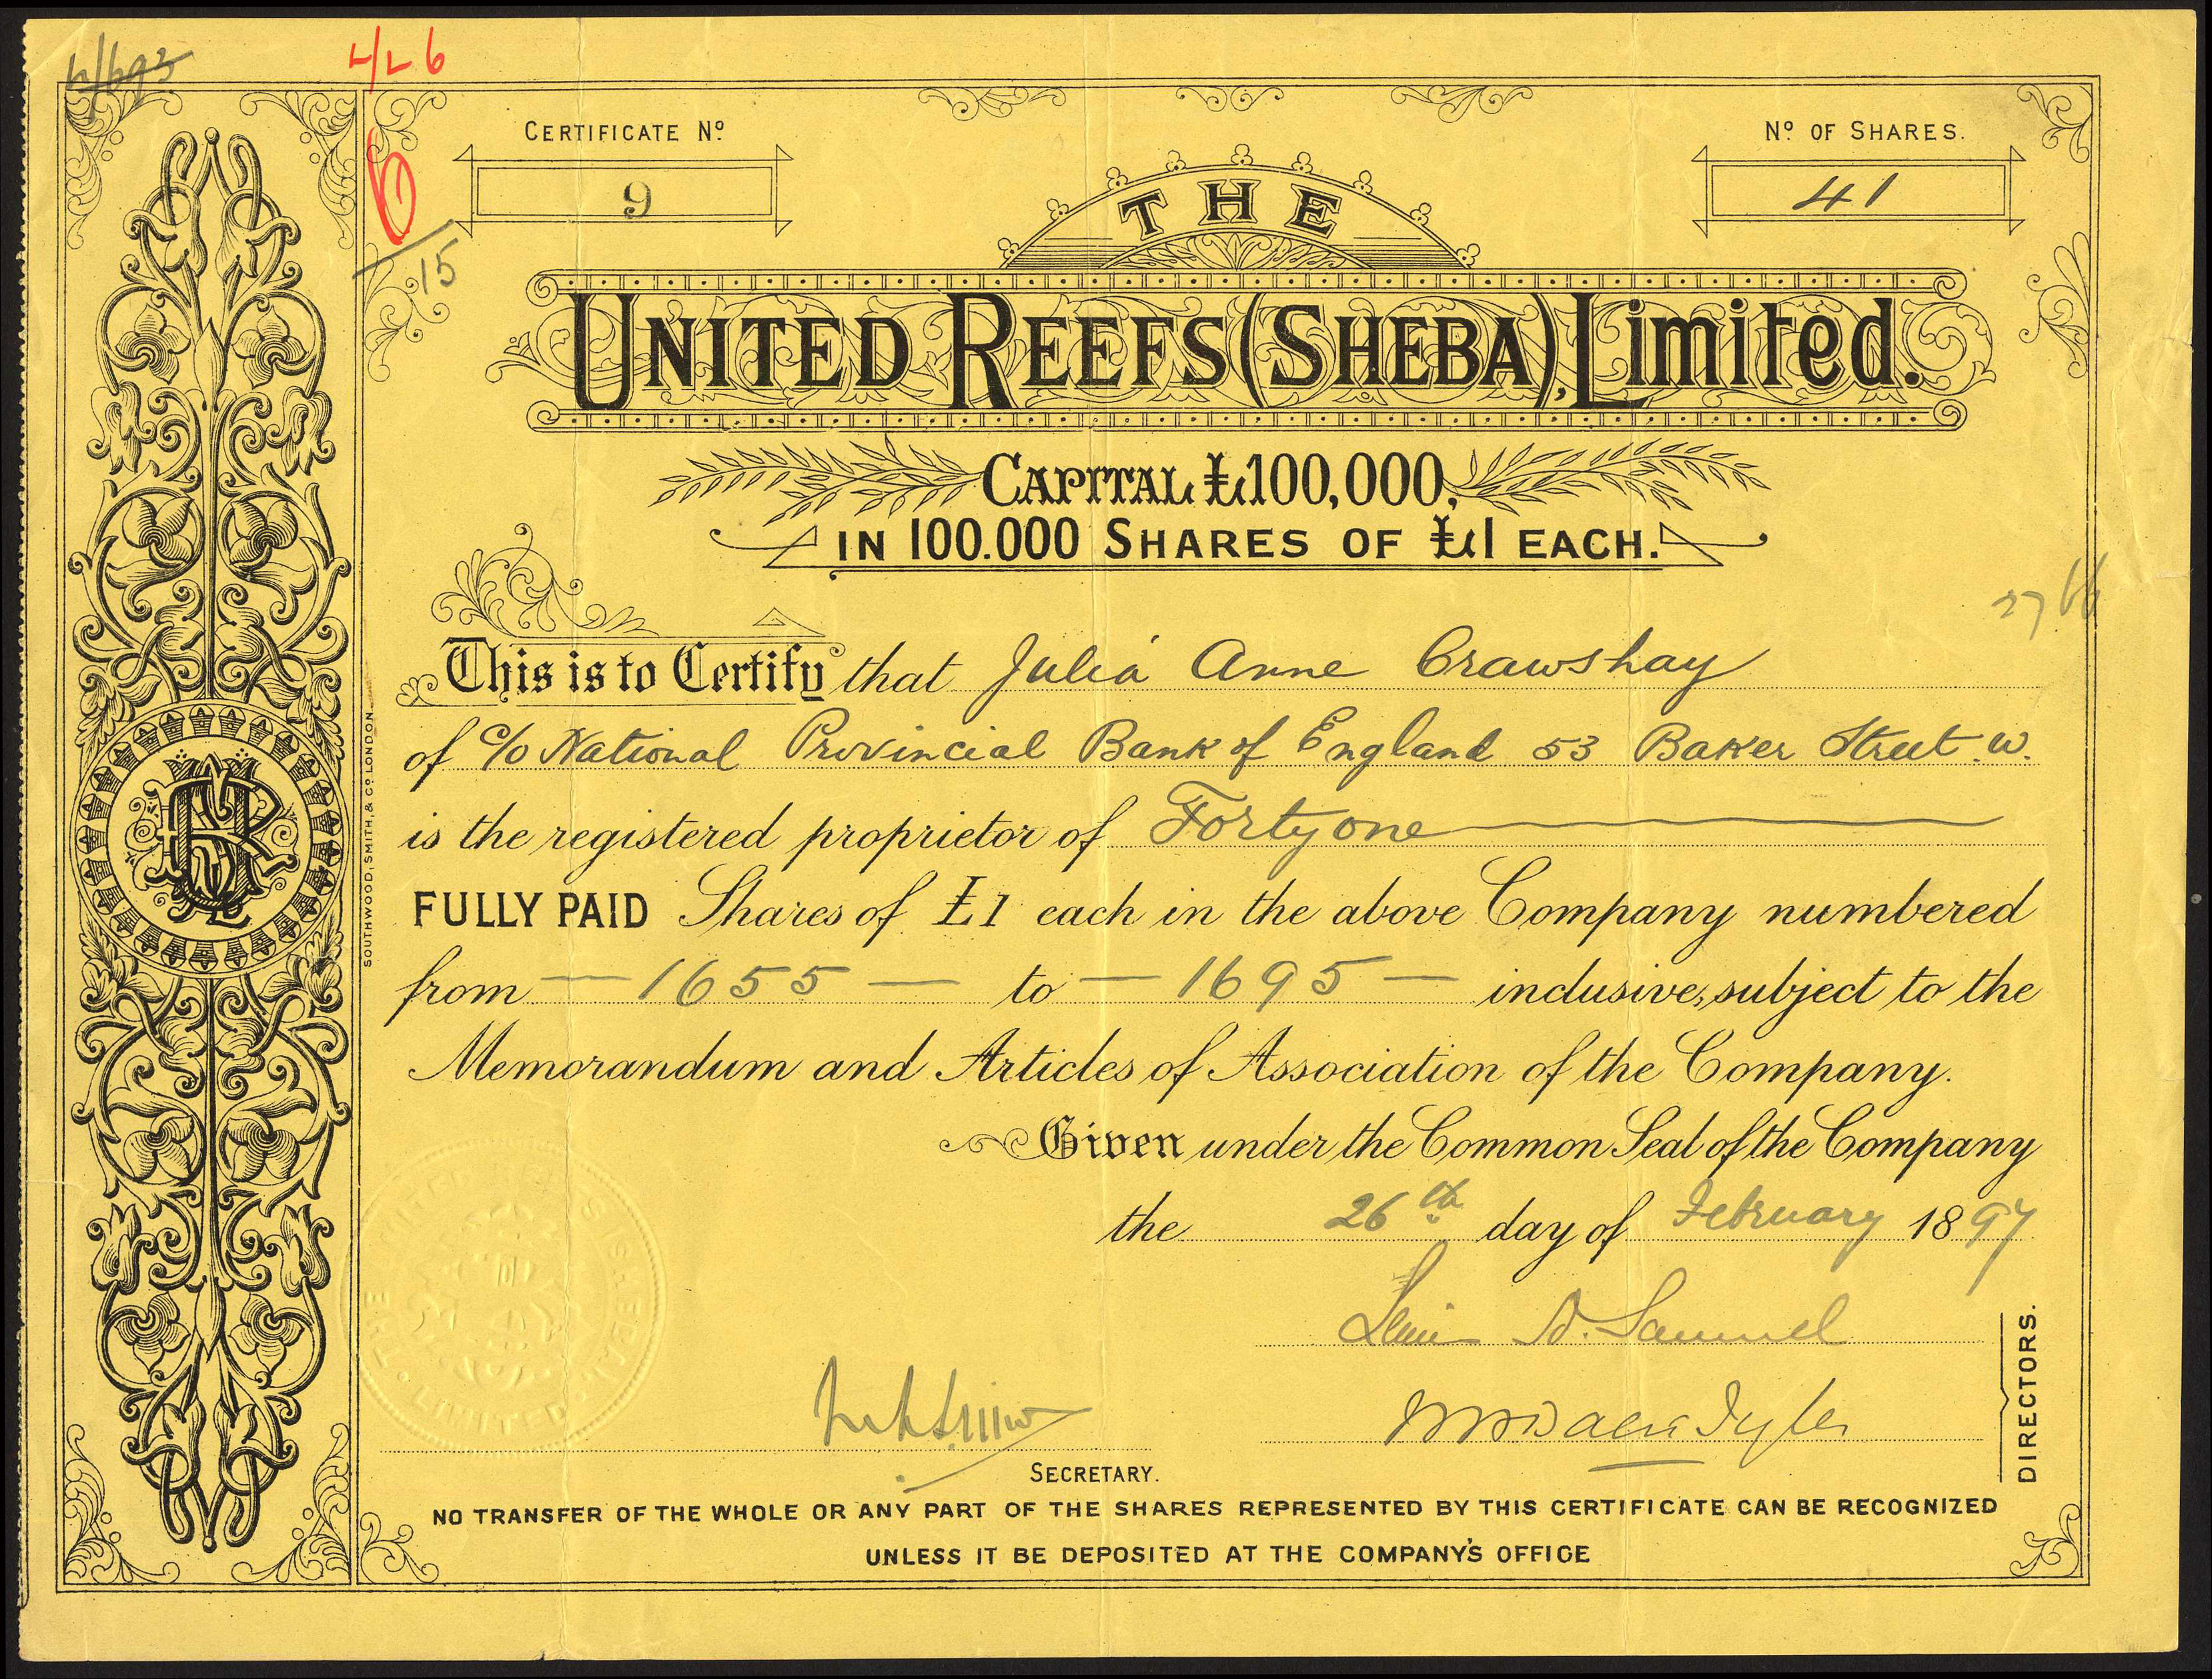 426
CERTIFICATE Nº
9
15
Nº OF SHARES.
41
THE
UNITED REEFS (SHEBA), Limited.
CAPITAL £100,000,
IN 100.000 SHARES OF £1 EACH.
This is to Certify that Julia Anne Crawshay
of c/o National Provincial Bank of England 53 Baker Street. W.
is the registered proprietor of Forty one
FULLY PAID Shares of £1 each in the above Company numbered
from — 1655 — to — 1695 — inclusive, subject to the
Memorandum and Articles of Association of the Company.
Given under the Common Seal of the Company
the 26th day of February 1897
Samuel
DIRECTORS.
SECRETARY.
NO TRANSFER OF THE WHOLE OR ANY PART OF THE SHARES REPRESENTED BY THIS CERTIFICATE CAN BE RECOGNIZED
UNLESS IT BE DEPOSITED AT THE COMPANY'S OFFICE
SOUTHWOOD, SMITH, & Cº LONDON.
THE UNITED REEFS (SHEBA) LIMITED